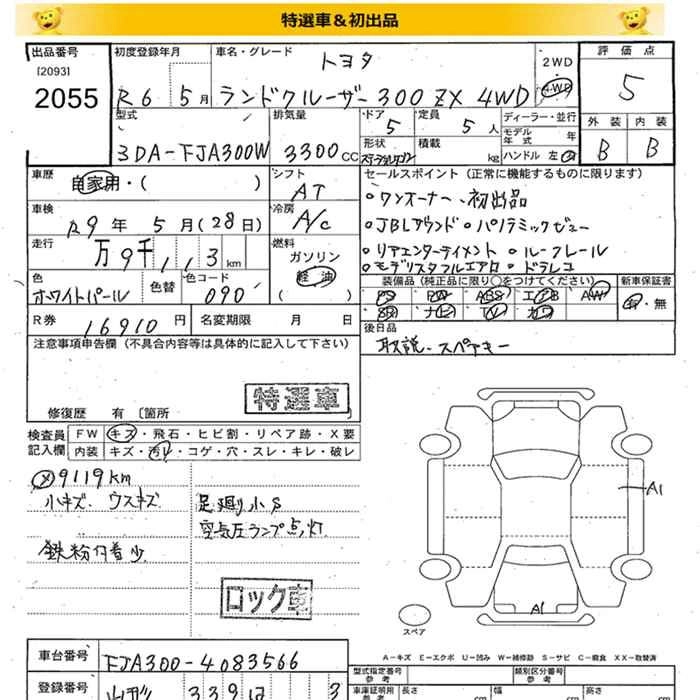 特選車＆初出品
出品番号 初度登録年月 車名・グレード トヨタ 2WD 評価点
[2093] 2055 R6 5月 ランドクルーザー300 ZX 4WD 4WD 5
型式 排気量 ドア 5 定員 5人 ディーラー・並行 外装 内装
3DA-FJA300W 3300cc 形状 積載 kg モデル年式 年 B B
ハンドル 左 右
車歴 自家用・( ) シフト AT セールスポイント（正常に機能するものに限ります）
車検 R9年 5月(28日) 冷房 A/C
。ワンオーナー、初出品
。JBLサウンド 。パノラミックビュー
走行 万9千113km 燃料 ガソリン 軽油 ( )
。リアエンターテイメント 。ルーフレール
。モデリスタフルエアロ 。ドラレコ
色 ホワイトパール 色替 色コード 090
装備品（純正品に限り○をつけてください） 新車保証書
PS PW ABS エアB AW 有・無
SR ナビ TV カワ
R券 16910円 名変期限 月 日
後日品 取説、スペアキー
注意事項申告欄（不具合内容等は具体的に記入して下さい）
特選車
修復歴 有 〔箇所 〕
検査員記入欄 FW キズ・飛石・ヒビ割・リペア跡・X要
内装 キズ・汚レ・コゲ・穴・スレ・キレ・破レ
メ9119km
小キズ、ウスキズ 足廻り小S
空気圧ランプ点灯
鉄粉付着少
ロック車
A1
A1
スペア
A－キズ E－エクボ U－凹み W－補修跡 S－サビ C－腐食 XX－取替済
車台番号 FJA300-4083566
型式指定番号 参考 類別区分番号 参考
登録番号 山形 339 は 3
車庫証明用 参考 長さ cm 幅 cm 高さ cm